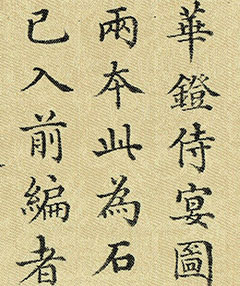 華鐙侍宴圖
兩本此為石
已入前編者